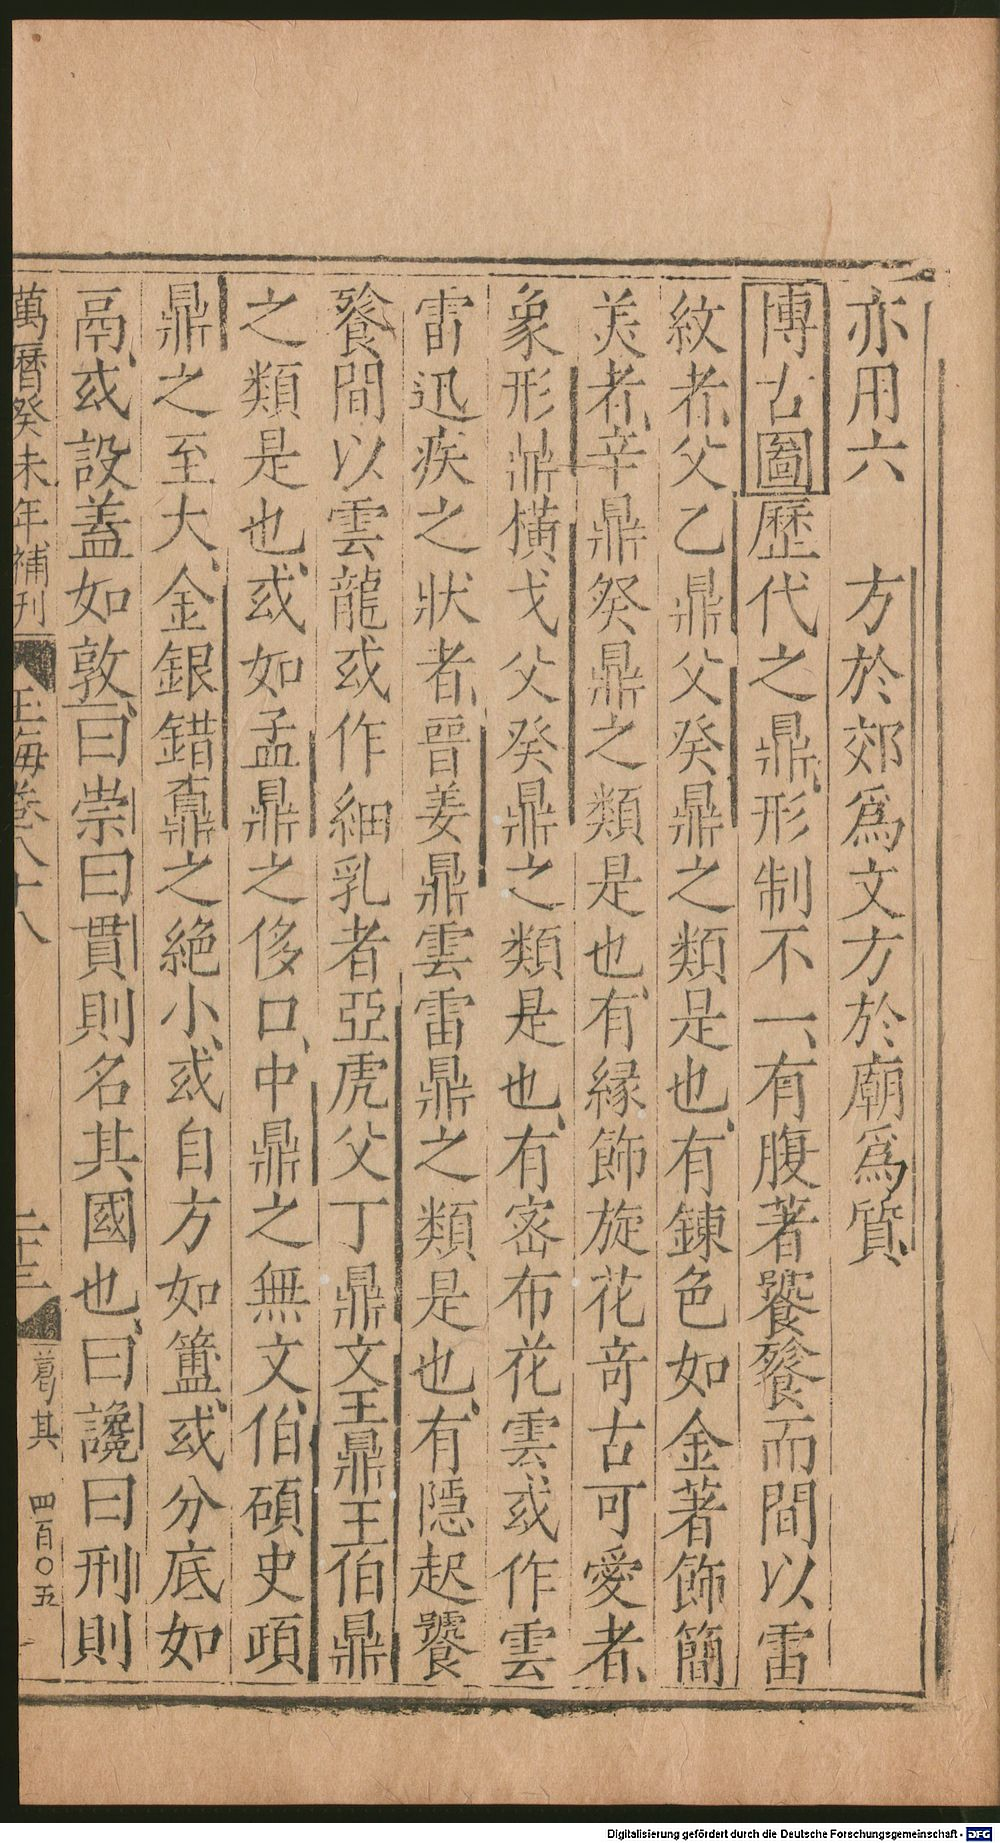 亦用六　方於郊爲文方於廟爲質、
博古圖歷代之鼎、形制不一、有腹著饕餮而間以雷
紋者、父乙鼎父癸鼎之類是也、有鍊色如金著飾簡
美者、辛鼎癸鼎之類是也、有緣飾旋花竒古可愛者、
象形鼎橫戈父癸鼎之類是也、有宻布花雲或作雲
雷迅疾之狀者、晉姜鼎雲雷鼎之類是也、有隠起饕
餮間以雲龍或作細乳者亞虎父丁鼎文王鼎王伯鼎
之類是也、或如孟鼎之侈口、中鼎之無文、伯碩史頙
鼎之至大、金銀錯鼒之絶小、或自方如簠、或分底如
鬲、或設蓋如敦、曰崇曰貫則名其國也、曰讒曰刑則
萬曆癸未年補刋
玉海卷八十八
二十三
葛其
四百〇五
Digitalisierung gefördert durch die Deutsche Forschungsgemeinschaft - DFG